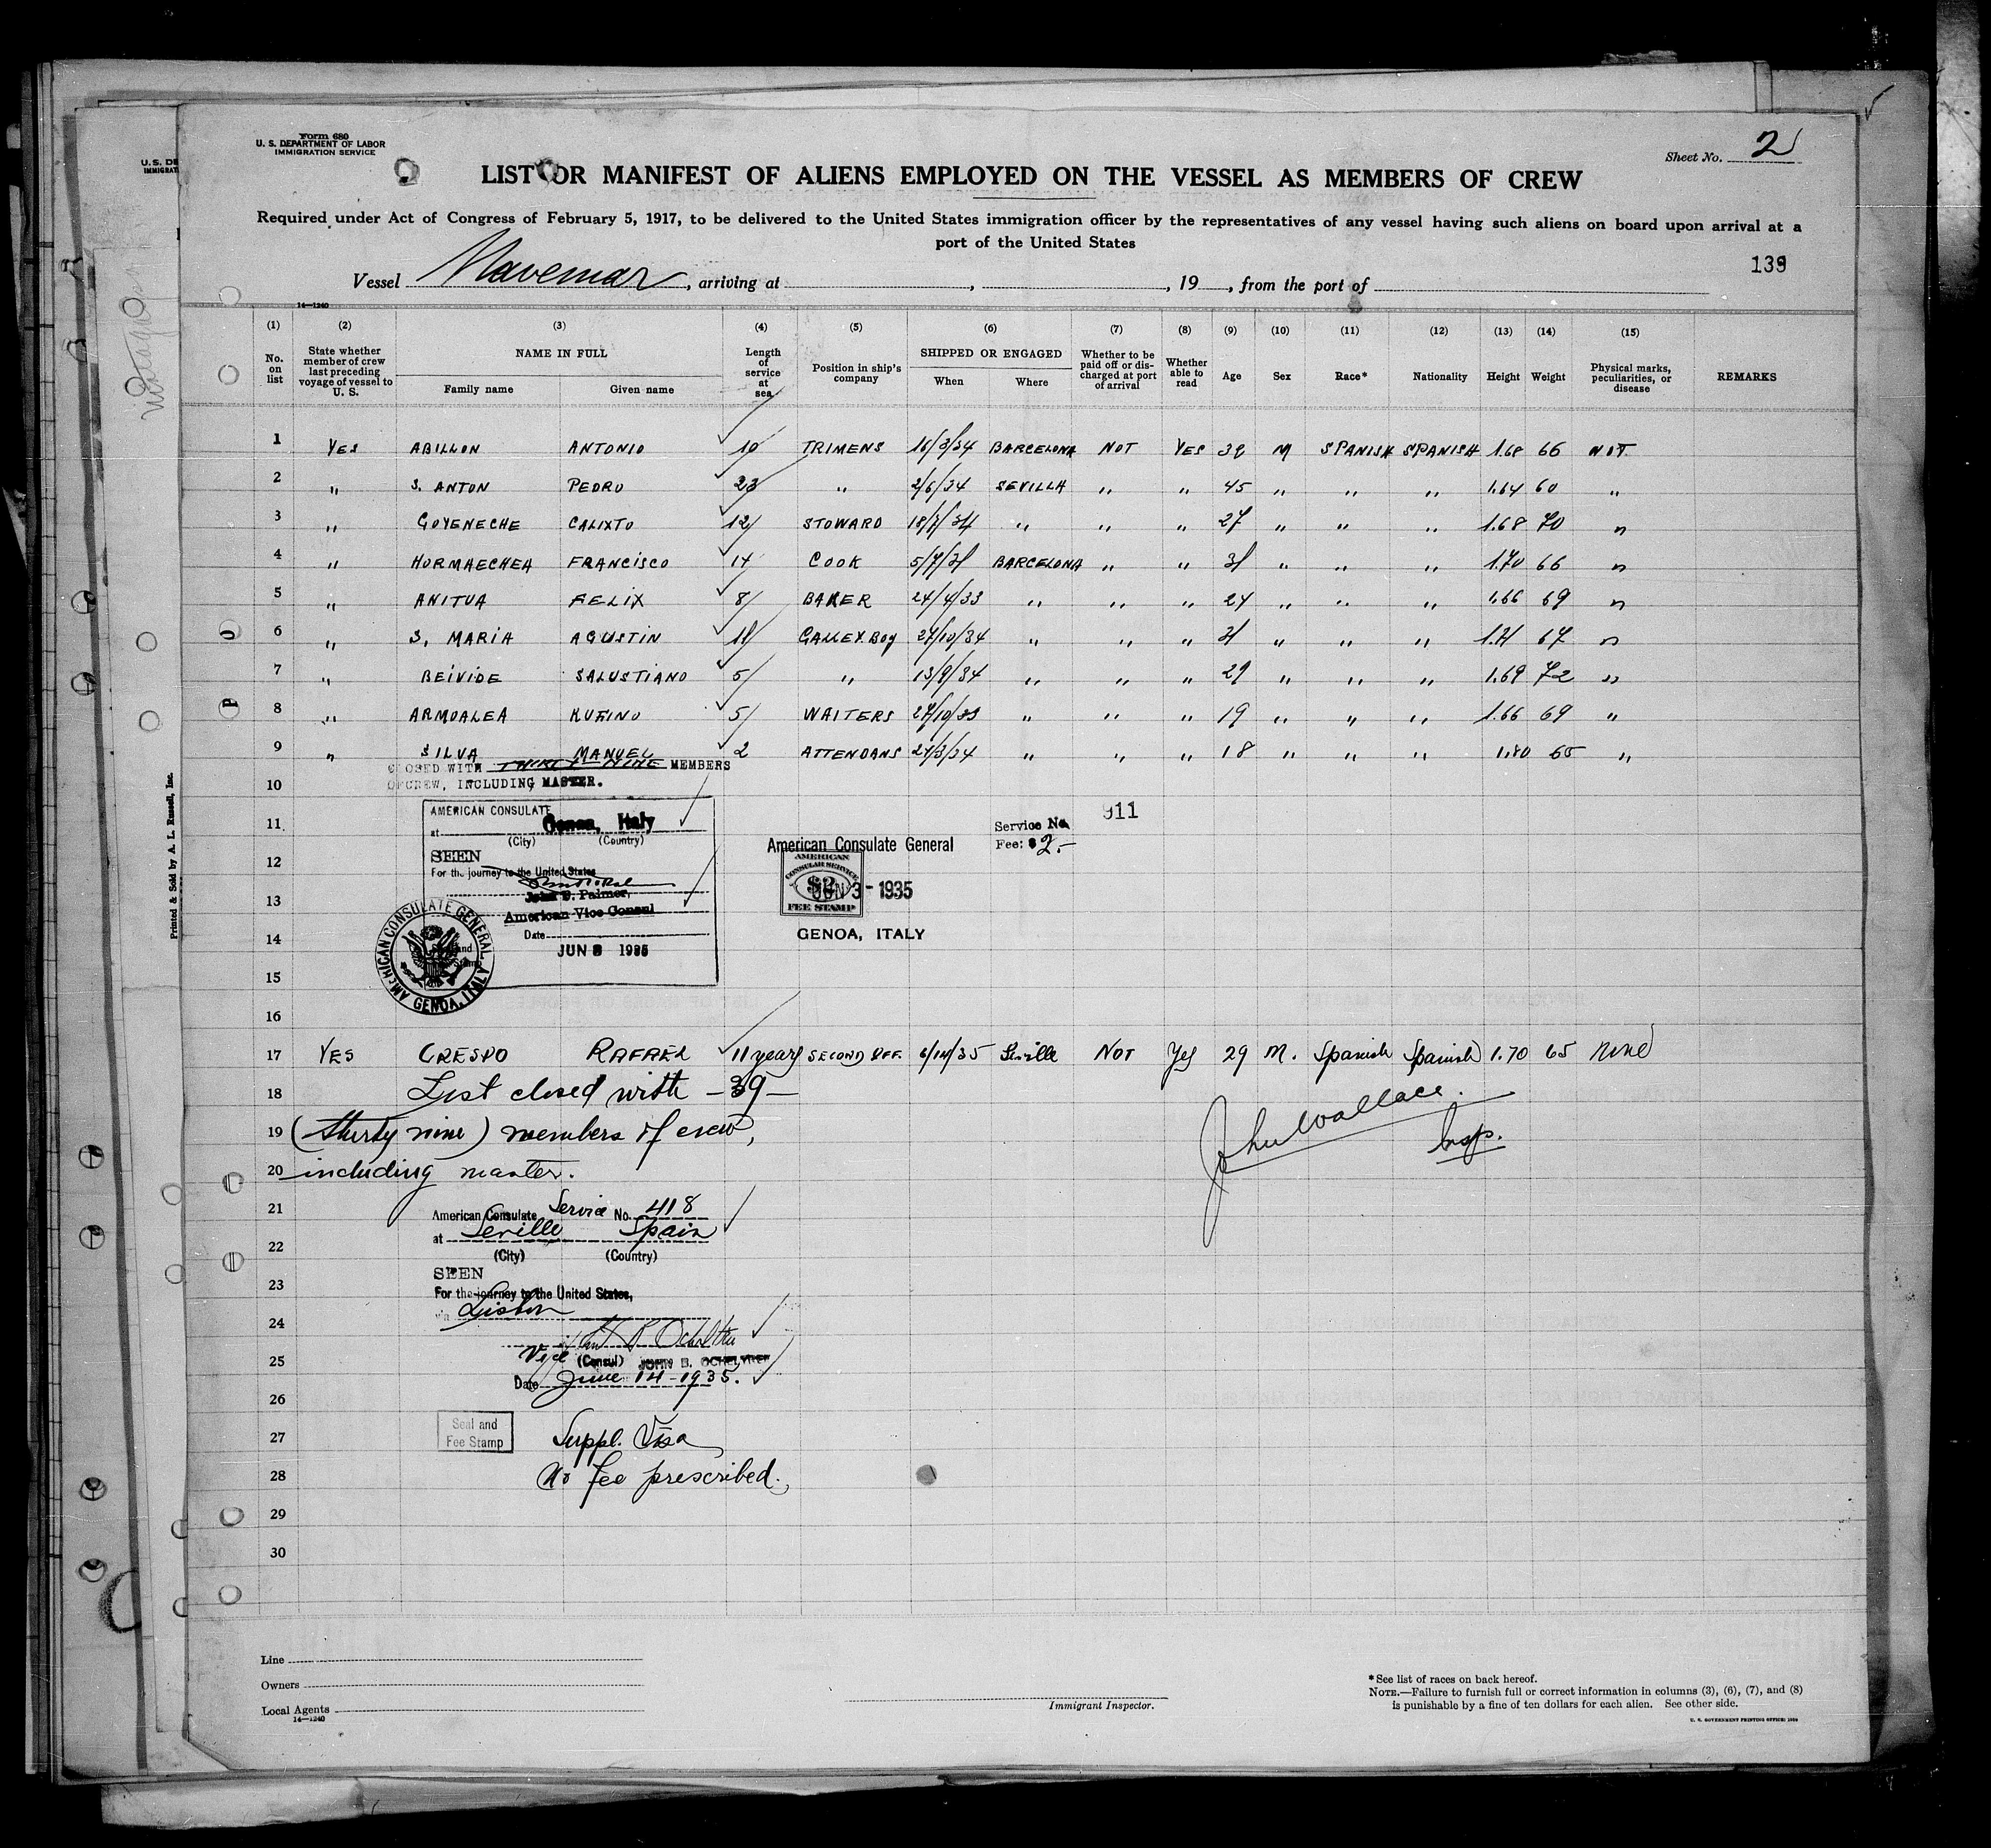 Form 680
U. S. DEPARTMENT OF LABOR
IMMIGRATION SERVICE
Sheet No. 2
LIST OR MANIFEST OF ALIENS EMPLOYED ON THE VESSEL AS MEMBERS OF CREW
Required under Act of Congress of February 5, 1917, to be delivered to the United States immigration officer by the representatives of any vessel having such aliens on board upon arrival at a
port of the United States
139
Vessel Navemar, arriving at , , 19 , from the port of
14—1240
(1) (2) (3) (4) (5) (6) (7) (8) (9) (10) (11) (12) (13) (14) (15)
No. on list State whether member of crew last preceding voyage of vessel to U. S. NAME IN FULL Family name Given name Length of service at sea Position in ship's company SHIPPED OR ENGAGED When Where Whether to be paid off or discharged at port of arrival Whether able to read Age Sex Race* Nationality Height Weight Physical marks, peculiarities, or disease REMARKS
1 YES ABILLON ANTONIO 10 TRIMENS 16/3/34 BARCELONA NOT YES 32 M SPANISH SPANISH 1.68 66 NOT
2 " S. ANTON PEDRO 23 " 2/6/34 SEVILLA " " 45 " " " 1.64 60 "
3 " GOYENECHE CALIXTO 12 STOWARD 18/7/34 " " " 27 " " " 1.68 70 "
4 " HORMAECHEA FRANCISCO 14 COOK 5/7/31 BARCELONA " " 31 " " " 1.70 66 "
5 " ANITUA FELIX 8 BAKER 24/4/33 " " " 24 " " " 1.66 69 "
6 " S, MARIA AGUSTIN 11 GALLEY.BOY 27/10/34 " " " 31 " " " 1.71 67 "
7 " BEIVIDE SALUSTIANO 5 " 13/9/34 " " " 29 " " " 1.69 72 "
8 " ARMOALEA RUFINO 5 WAITERS 27/10/33 " " " 19 " " " 1.66 69 "
9 " SILVA MANUEL 2 ATTENDANS 21/3/34 " " " 18 " " " 1.80 65 "
CLOSED WITH THIRTY NINE MEMBERS
10 OF CREW, INCLUDING MASTER.
AMERICAN CONSULATE
11 at Genoa, Italy
(City) (Country)
Service No. 911
Fee: $ 2.-
12 SEEN
For the journey to the United States
American Consulate General
AMERICAN CONSULAR SERVICE
$2
FEE STAMP
JUN 3 - 1935
GENOA, ITALY
13 John D. Palmer,
American Vice Consul
14 Date
JUN 3 1935
AMERICAN CONSULATE GENERAL GENOA, ITALY
15
16
17 YES CRESPO RAFAEL 11 years SECOND OFF. 6/14/35 Seville NOT Yes 29 M. Spanish Spanish 1.70 65 None
18 List closed with -39-
19 (thirty nine) members of crew,
20 including master.
John Wallace.
Insp.
21 American Consulate Service No. 418
at Seville Spain
22 (City) (Country)
SEEN
23 For the journey to the United States,
via Lisbon
24
25 Vice (Consul) JOHN B. OCHELTREE
Date June 14-1935.
26
Seal and
Fee Stamp
27 Suppl. Visa
28 No fee prescribed.
29
30
Line
Owners
Local Agents
14—1240
Immigrant Inspector.
*See list of races on back hereof.
NOTE.—Failure to furnish full or correct information in columns (3), (6), (7), and (8)
is punishable by a fine of ten dollars for each alien. See other side.
U. S. GOVERNMENT PRINTING OFFICE:
Printed & Sold by A. L. Russell, Inc.
U. S. DE
IMMIGRAT